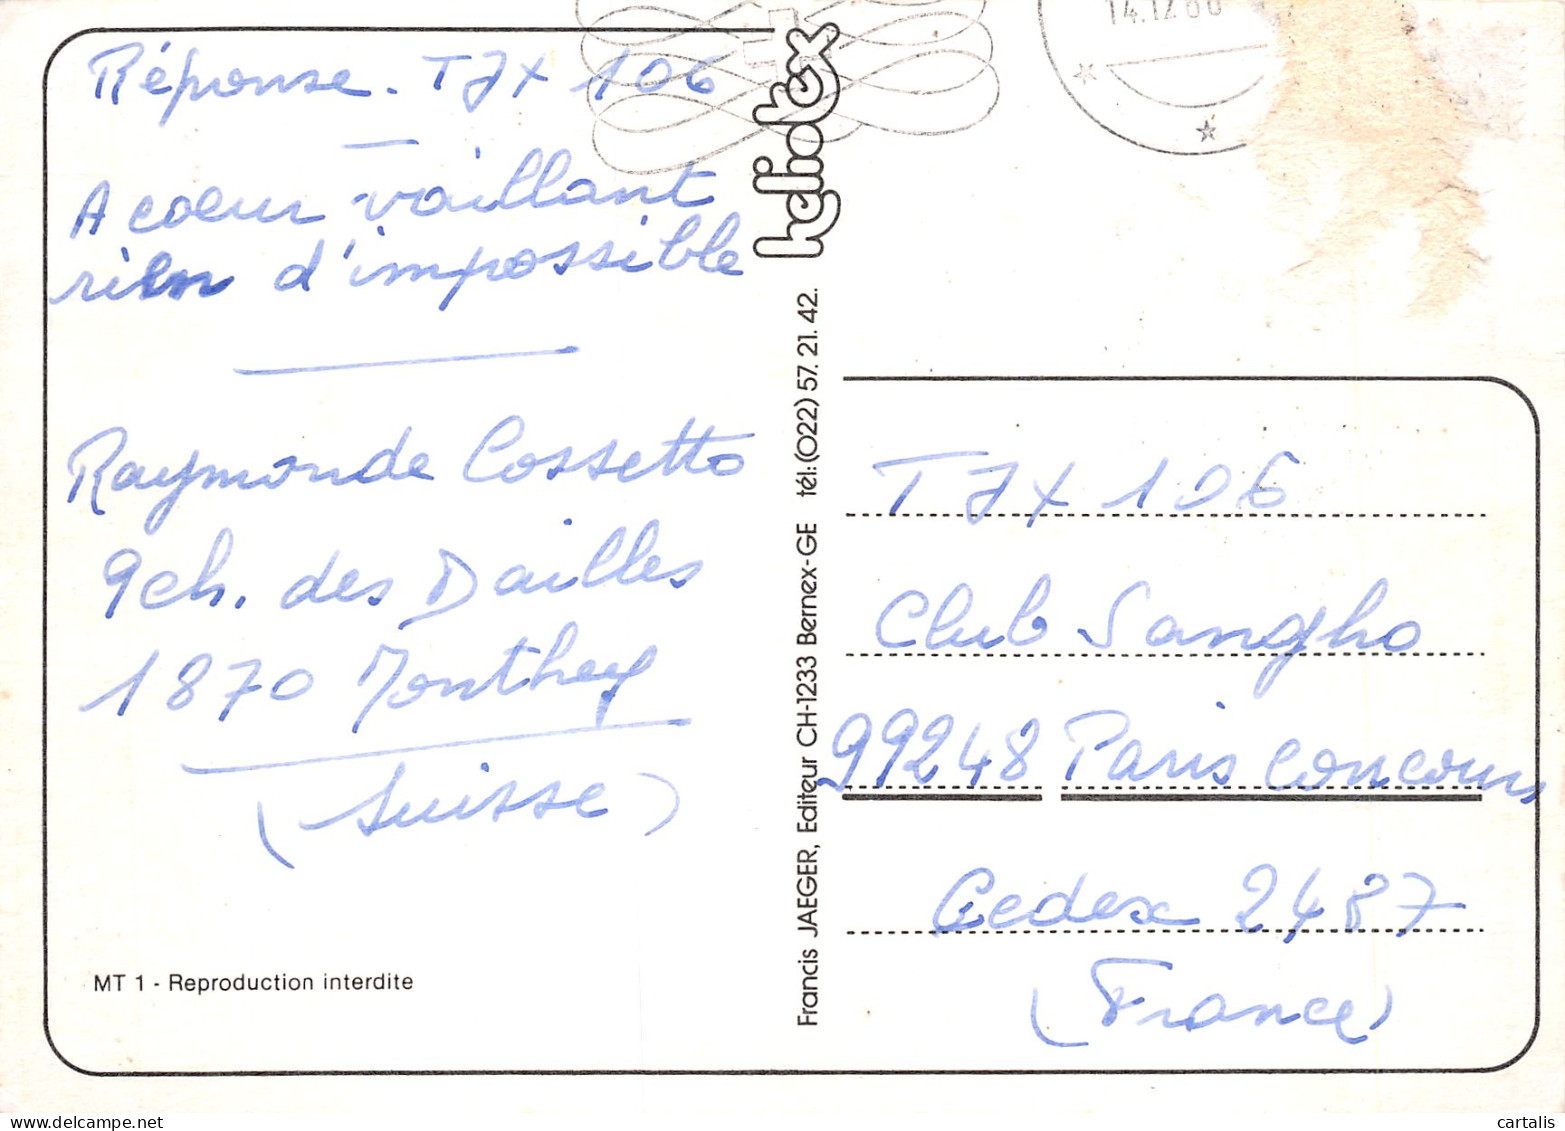 Réponse. TJX 106
A coeur vaillant
rien d'impossible
Raymonde Cossetto
9 ch. des Dailles
1870 Monthey
(Suisse)
MT 1 - Reproduction interdite
heliotex
Francis JAEGER, Editeur CH-1233 Bernex-GE tél: (022) 57. 21. 42.
TJX 106
Club Sangho
99248 Paris concours
Cedex 2487
(France)
cartalis